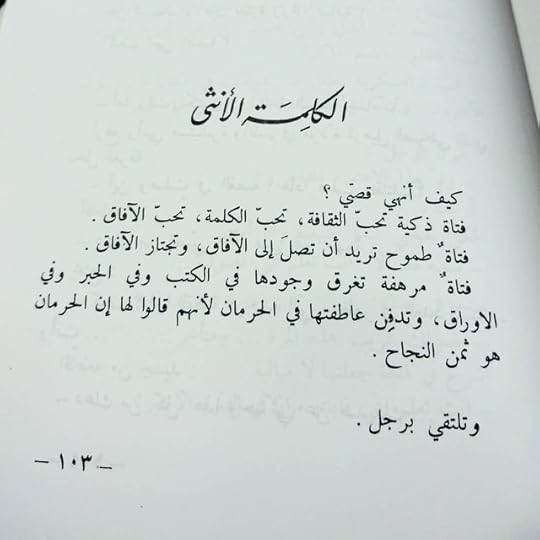 الكلِمَة الأنثى
كيف أنهي قصتي ؟
فتاة ذكية تحبّ الثقافة، تحبّ الكلمة، تحبّ الآفاق .
فتاةٌ طموح تريد أن تصلَ إلى الآفاق، وتجتاز الآفاق .
فتاةٌ مرهفة تغرق وجودها في الكتب وفي الحبر وفي
الاوراق، وتدفِن عاطفتها في الحرمان لأنهم قالوا لها إن الحرمان
هو ثمن النجاح .
وتلتقي برجل .
– ١٠٣ –